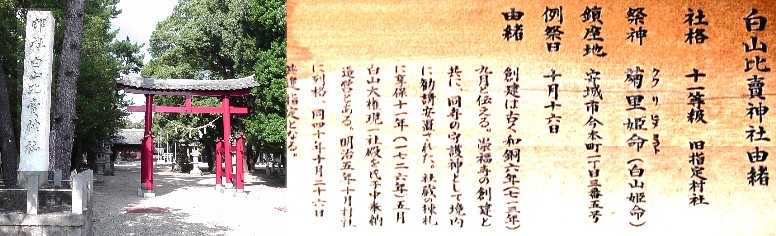 白山比賣神社
白山比賣神社由緒
社格 十一等級 旧指定村社
祭神 菊里姫命(白山姫命)
ククリヒメノミコト
鎮座地 安城市今本町一丁目三番五号
例祭日 十月十六日
由緒
創建は古く和銅六年(七一三年)
九月と伝える。崇福寺の創建と
共に、同寺の守護神として境内
に勧請安置された。社蔵の棟札
に享保十一年(一七二六年)五月
白山大権現一社殿を氏子中奉納
造営とある。明治五年十月村社
に列格、同四十年十月二十六日
指定となる。